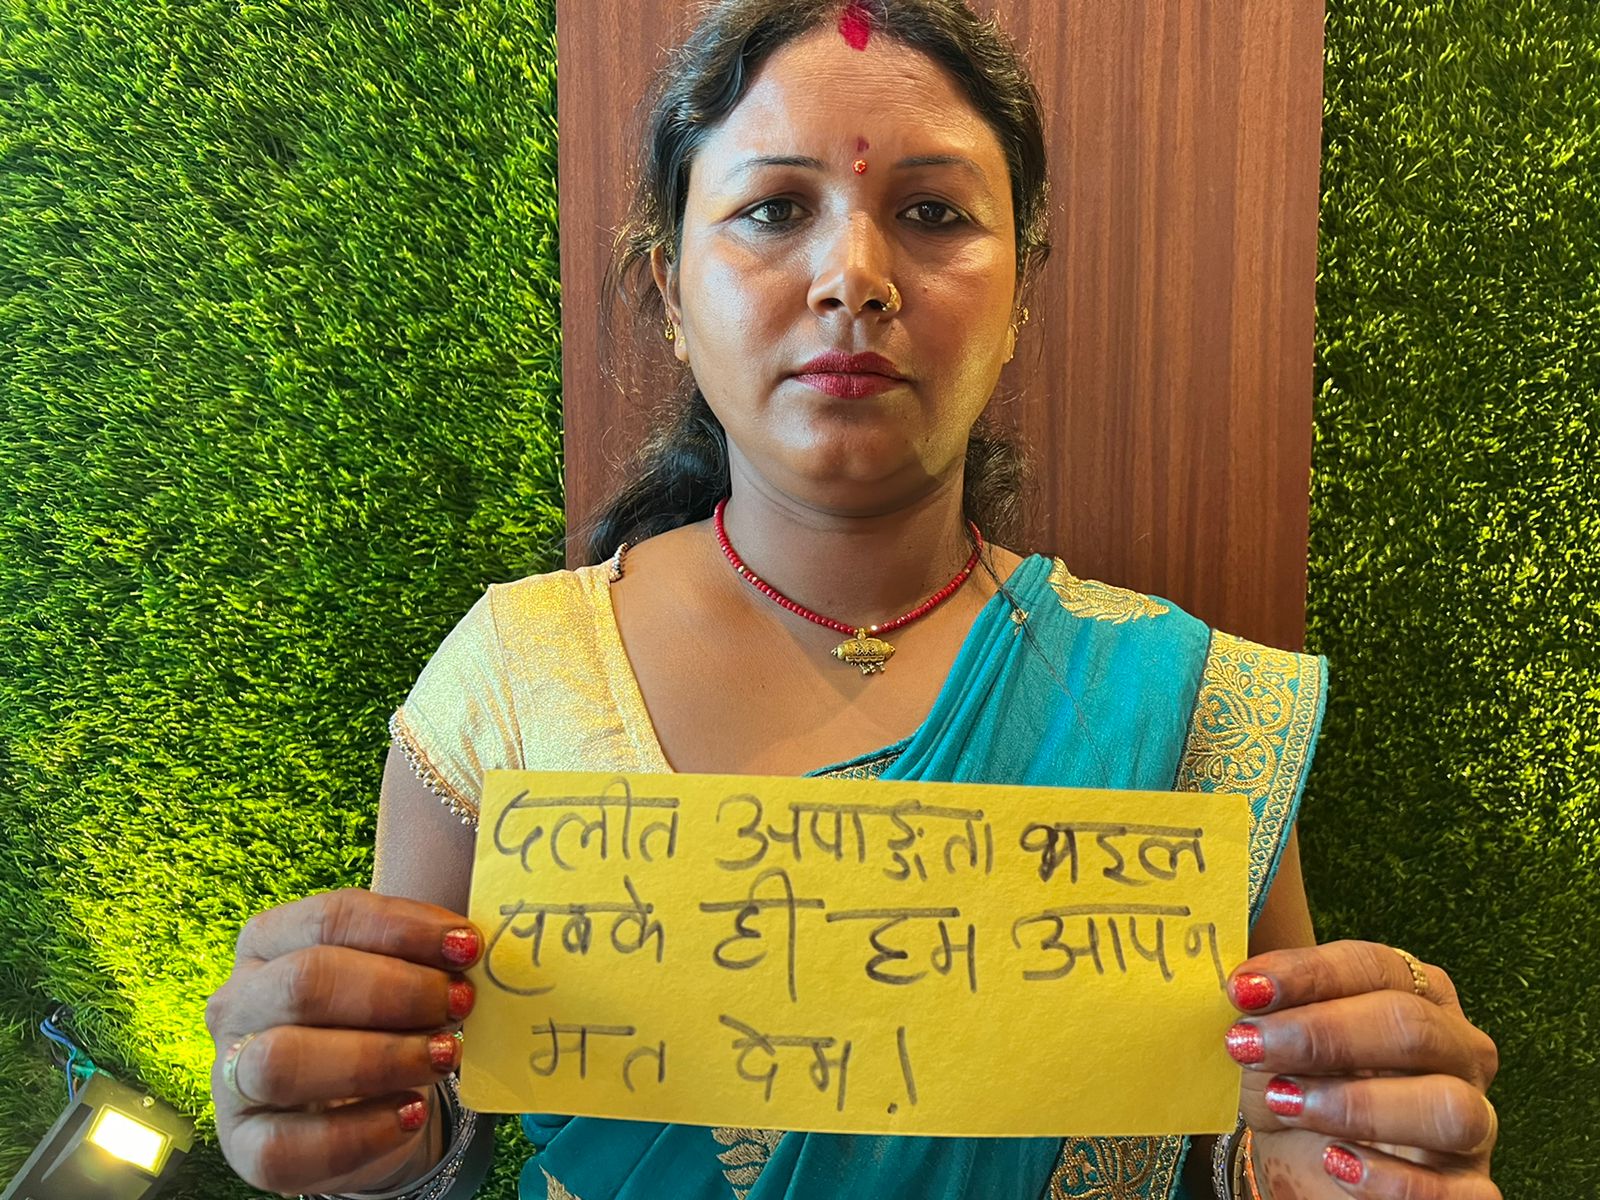 दलीत अपाङ्गता भइल
सबके ही हम आपन
मत देम।